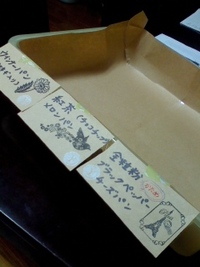 ウィンナーパン
紅茶(チョコチップ)
メロンパン
全粒粉
ブラックペッパー
チーズパン